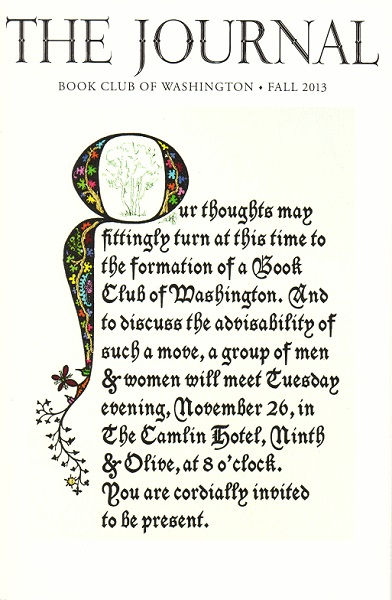 THE JOURNAL
BOOK CLUB OF WASHINGTON • FALL 2013
Our thoughts may
fittingly turn at this time to
the formation of a Book
Club of Washington. And
to discuss the advisability of
such a move, a group of men
& women will meet Tuesday
evening, November 26, in
The Camlin Hotel, Ninth
& Olive, at 8 o'clock.
You are cordially invited
to be present.